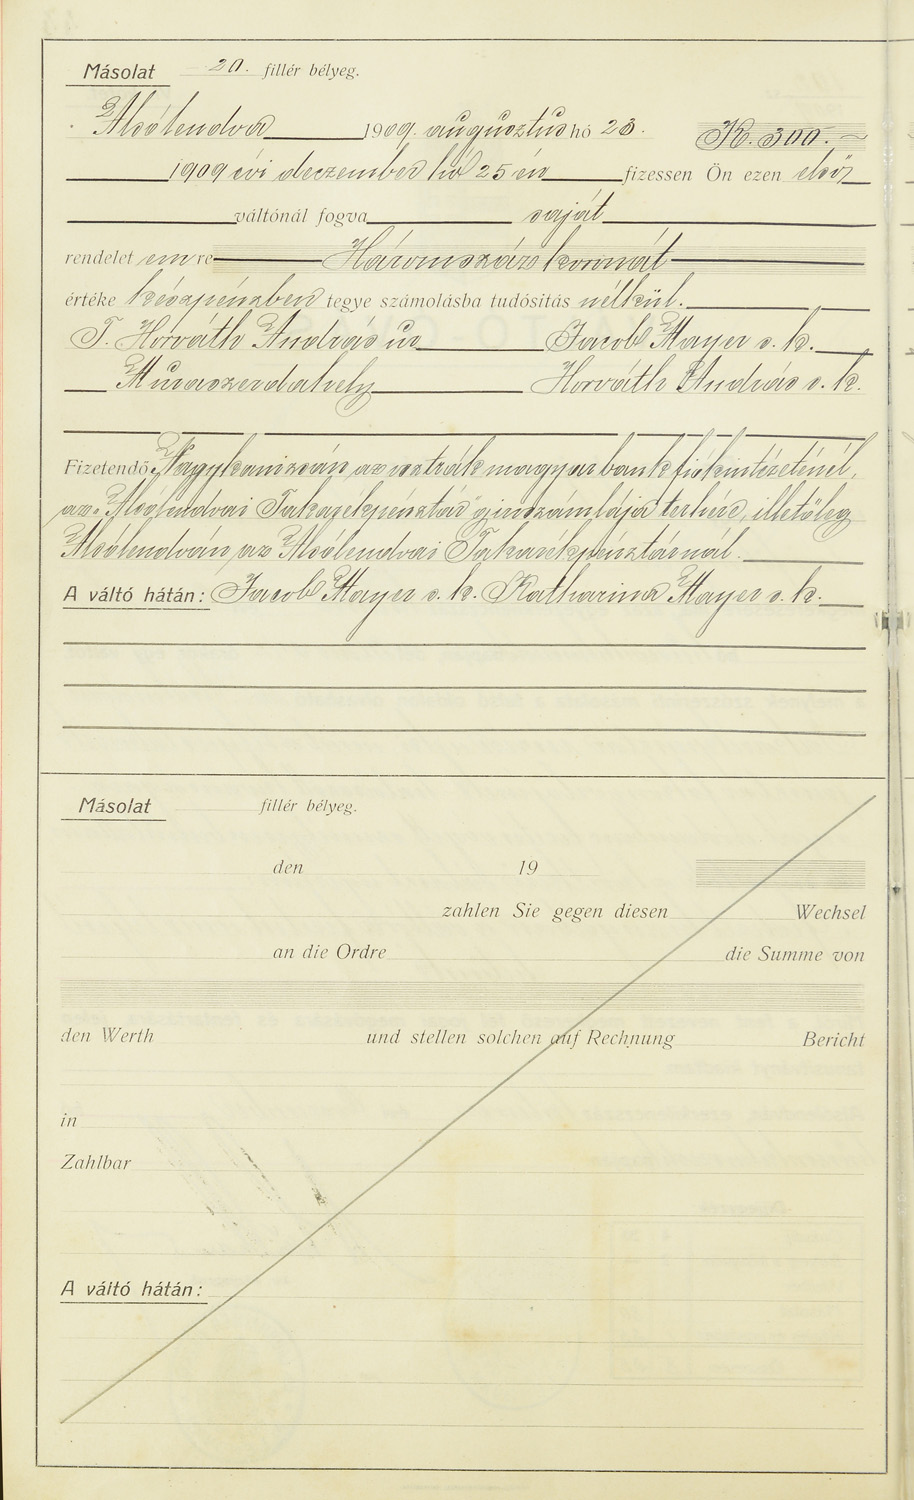 Másolat 20. fillér bélyeg.
Alsólendva 1909. augusztus hó 23. K. 300.
1909 évi deczember hó 25 én fizessen Ön ezen első
váltónál fogva saját
rendelet emre Háromszáz koronát
értéke készpénzben tegye számolásba tudósitás nélkül.
T. Horváth András ur Jacob Mayer s. k.
Muraszerdahely Horváth András s. k.
Fizetendő Nagykanizsán az osztrák magyar bank fiókintézeténél,
az "Alsólendvai Takarékpénztár" giroszámlája terhére, illetőleg
Alsólendván az Alsólendvai Takarékpénztárnál.
A váltó hátán: Jacob Mayer s. k. Katharina Mayer s. k.
Másolat fillér bélyeg.
den 19
zahlen Sie gegen diesen Wechsel
an die Ordre die Summe von
den Werth und stellen solchen auf Rechnung Bericht
in
Zahlbar
A váltó hátán: